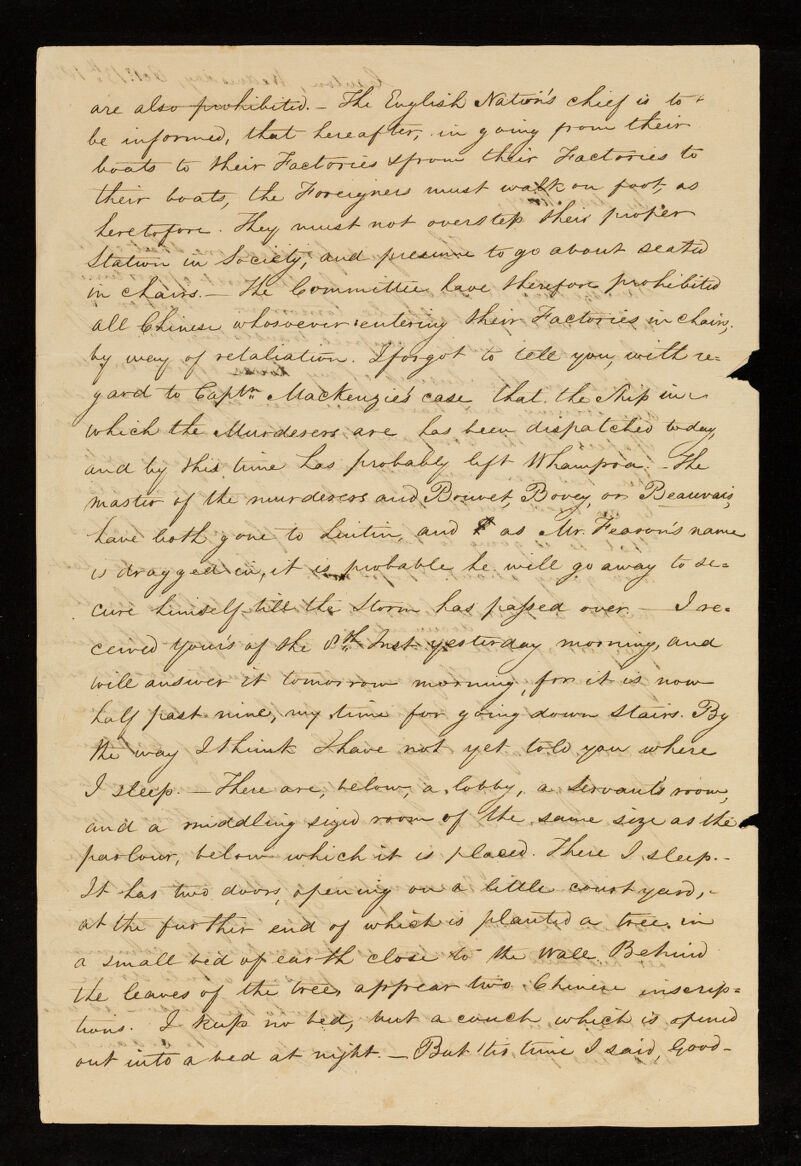 are also prohibited. – The English Nation's chief is to
be informed, that hereafter, in going from their
boats to their Factories & from their Factories to
their boats, the Foreigners must walk on foot, as
heretofore. They must not overstep their proper
Station in Society, and presume to go about seated
in chairs. — The Committee have therefore prohibited
all Chinese whosoever entering their Factories in chairs,
by way of retaliation. I forgot to tell you, with re=
gard to Captn. Mackenzie's case that the Ship in
which the Murderers are has been dispatched today,
and by this time has probably left Whampoa. – The
master of the murderers and Bouvet, Bovey, or Beauvais,
have both gone to Lintin, and as Mr. Fearon's name
is dragged in, it is probable he will go away to se=
cure himself till the Storm has passed over. — I re=
ceived your's of the 8th Inst. yesterday morning, and
will answer it tomorrow morning, for it is now
half past nine, my time for going down stairs. By
the way I think I have not yet told you where
I sleep. — There are, below, a lobby, a Servant's room,
and a middling sized room of the same size as the
parlour, below which it is placed. There I sleep. –
It has two doors, opening on a little court yard, –
at the further end of which is planted a tree, in
a small bed of earth close to the Wall. Behind
the leaves of the tree, appear two Chinese inscrip=
tions. I keep no bed, but a couch which is opened
out into a bed at night. — But 'tis time I said, Good–